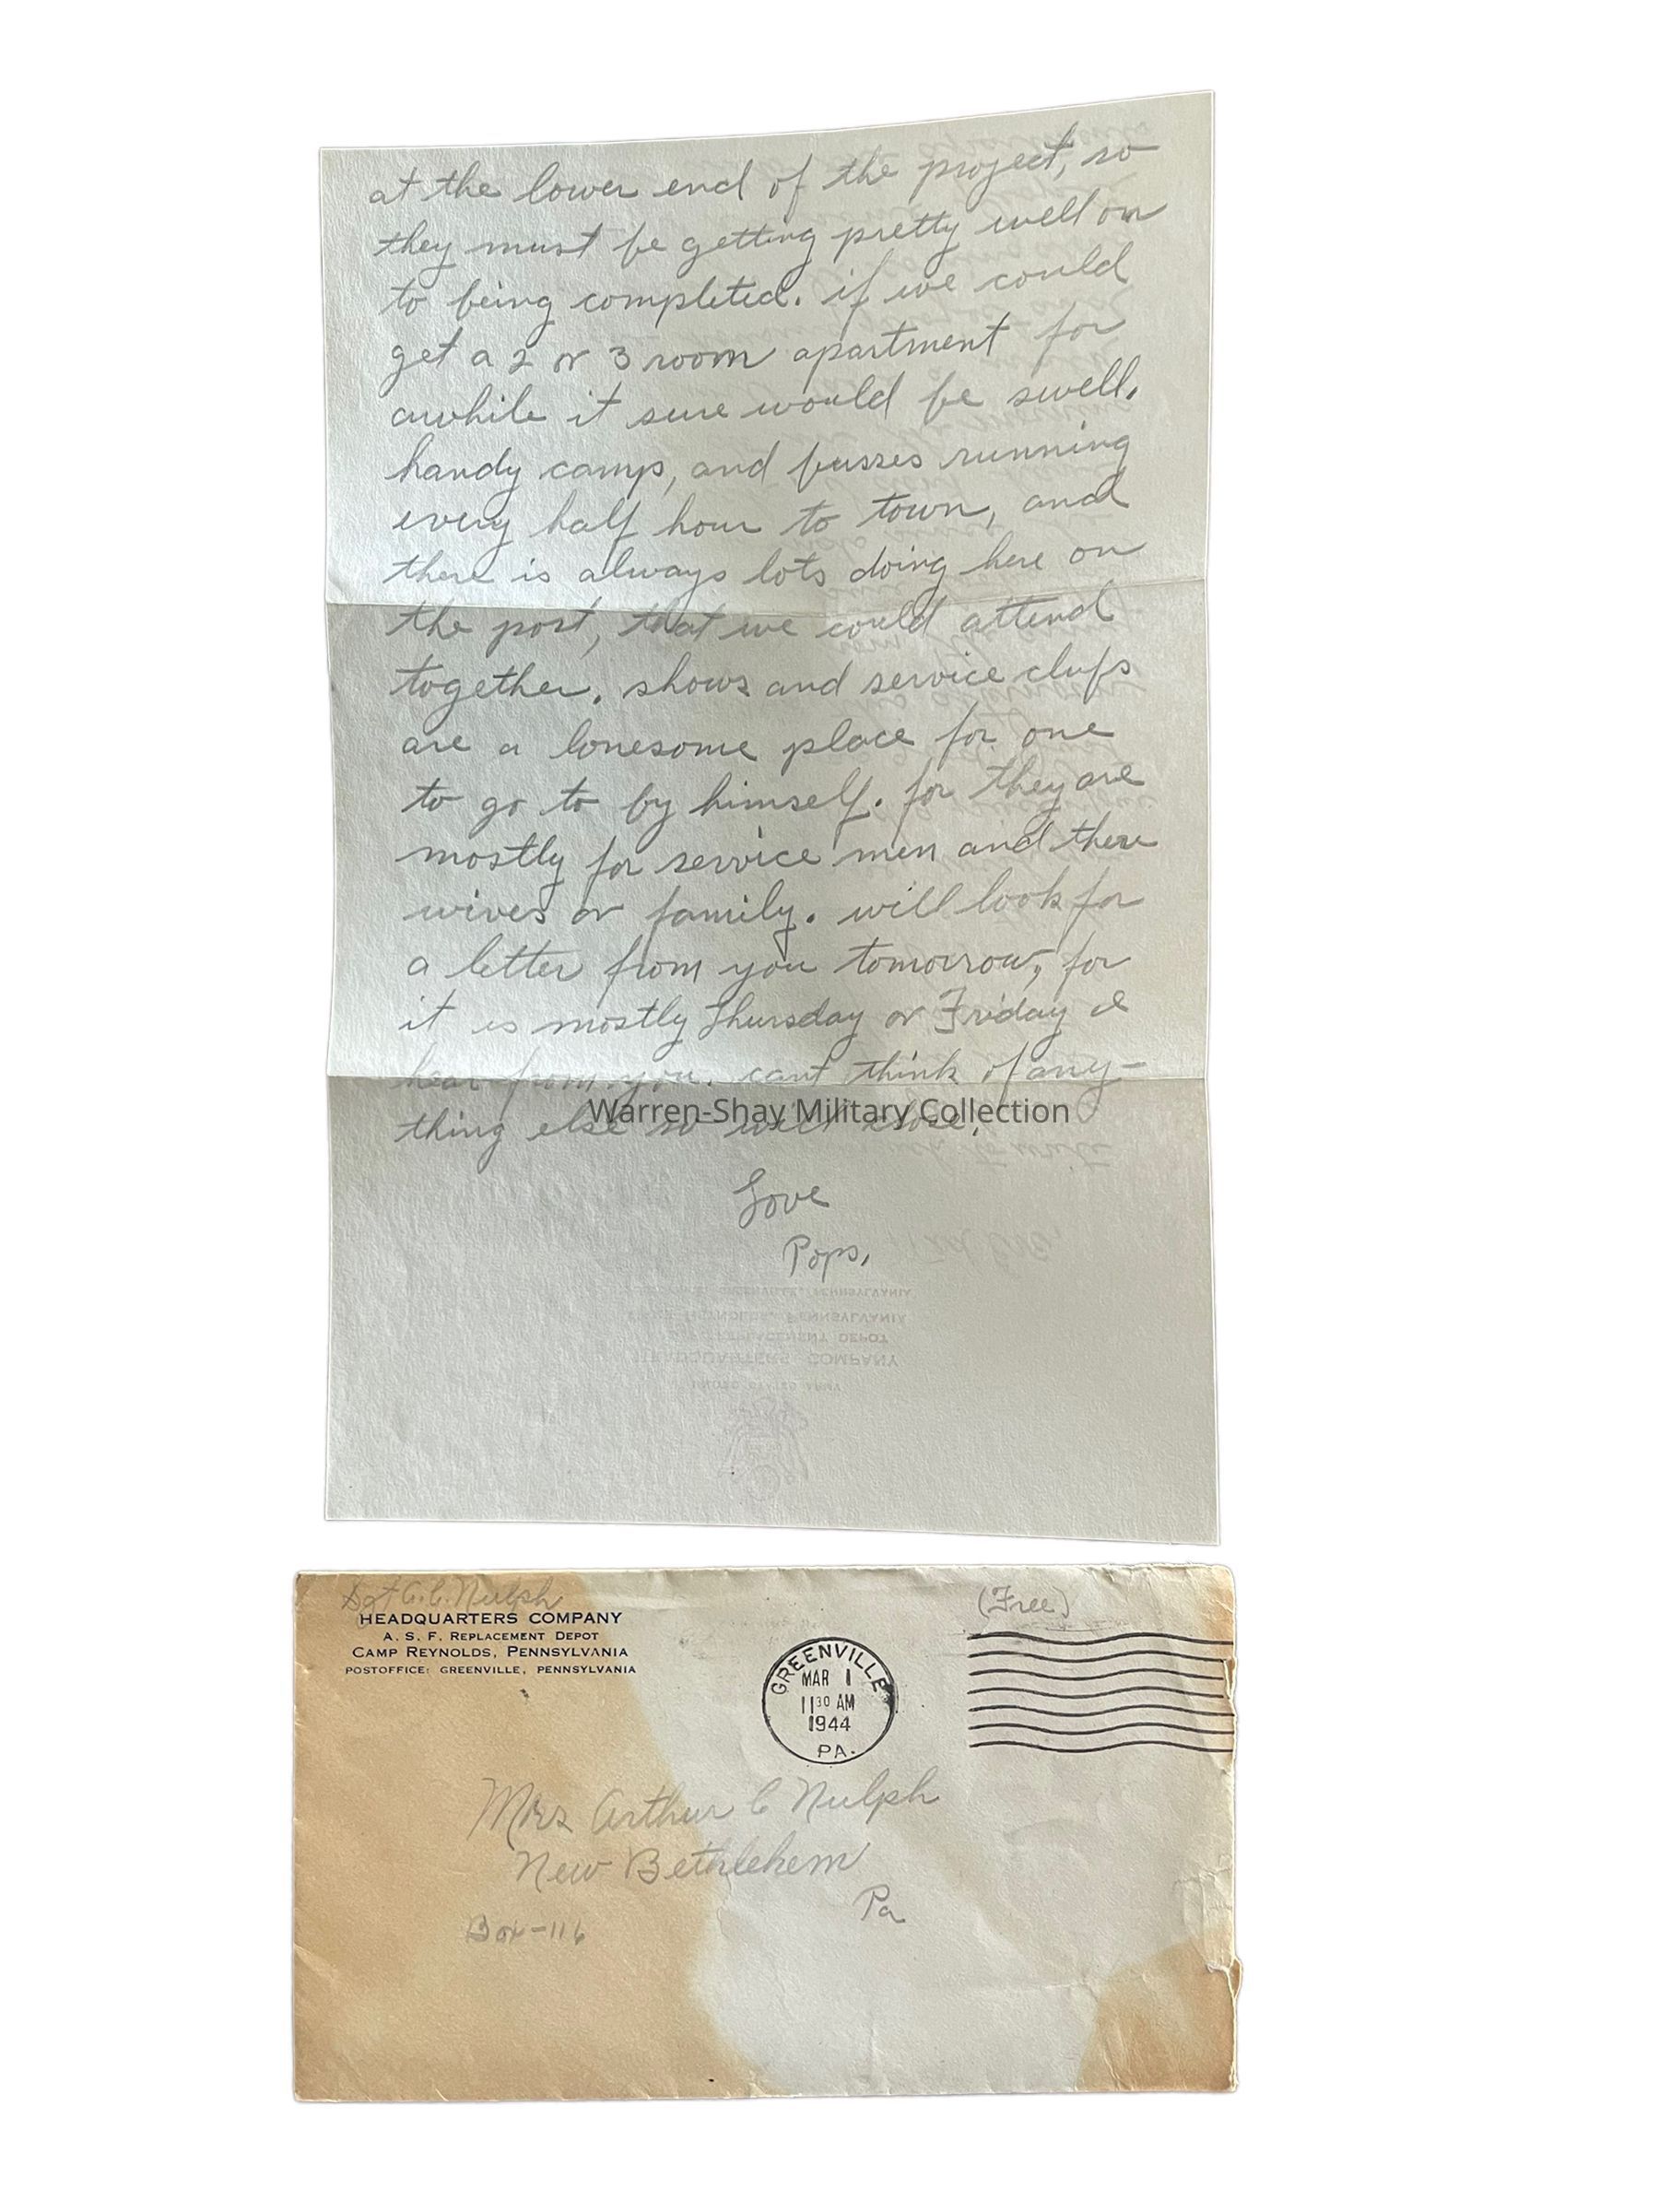 at the lower end of the project, so
they must be getting pretty well on
to being completed. if we could
get a 2 or 3 room apartment for
awhile it sure would be swell.
handy camp, and busses running
every half hour to town, and
there is always lots doing here on
the post, that we could attend
together. shows and service clubs
are a lonesome place for one
to go to by himself. for they are
mostly for service men and there
wives or family. will look for
a letter from you tomorrow, for
it is mostly Thursday or Friday I
hear from you. cant think of any-
thing else so will close.
Warren-Shay Military Collection
Love
Pops,
Sgt A.C. Nulph
HEADQUARTERS COMPANY
A. S. F. REPLACEMENT DEPOT
CAMP REYNOLDS, PENNSYLVANIA
POSTOFFICE: GREENVILLE, PENNSYLVANIA
(Free)
GREENVILLE
MAR 1
11 30 AM
1944
PA.
Mrs Arthur C Nulph
New Bethlehem
Pa
Box-116